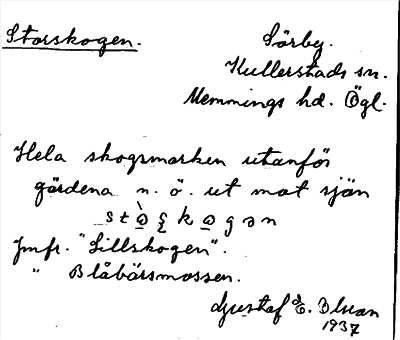 Storskogen.
Sörby.
Kullerstads sn.
Memmings hd. Ögl.
Hela skogsmarken utanför
gärdena n. ö. ut mot sjön
Jmfr. "Lillskogen".
" Blåbärsmossen.
Gustaf E.
1937